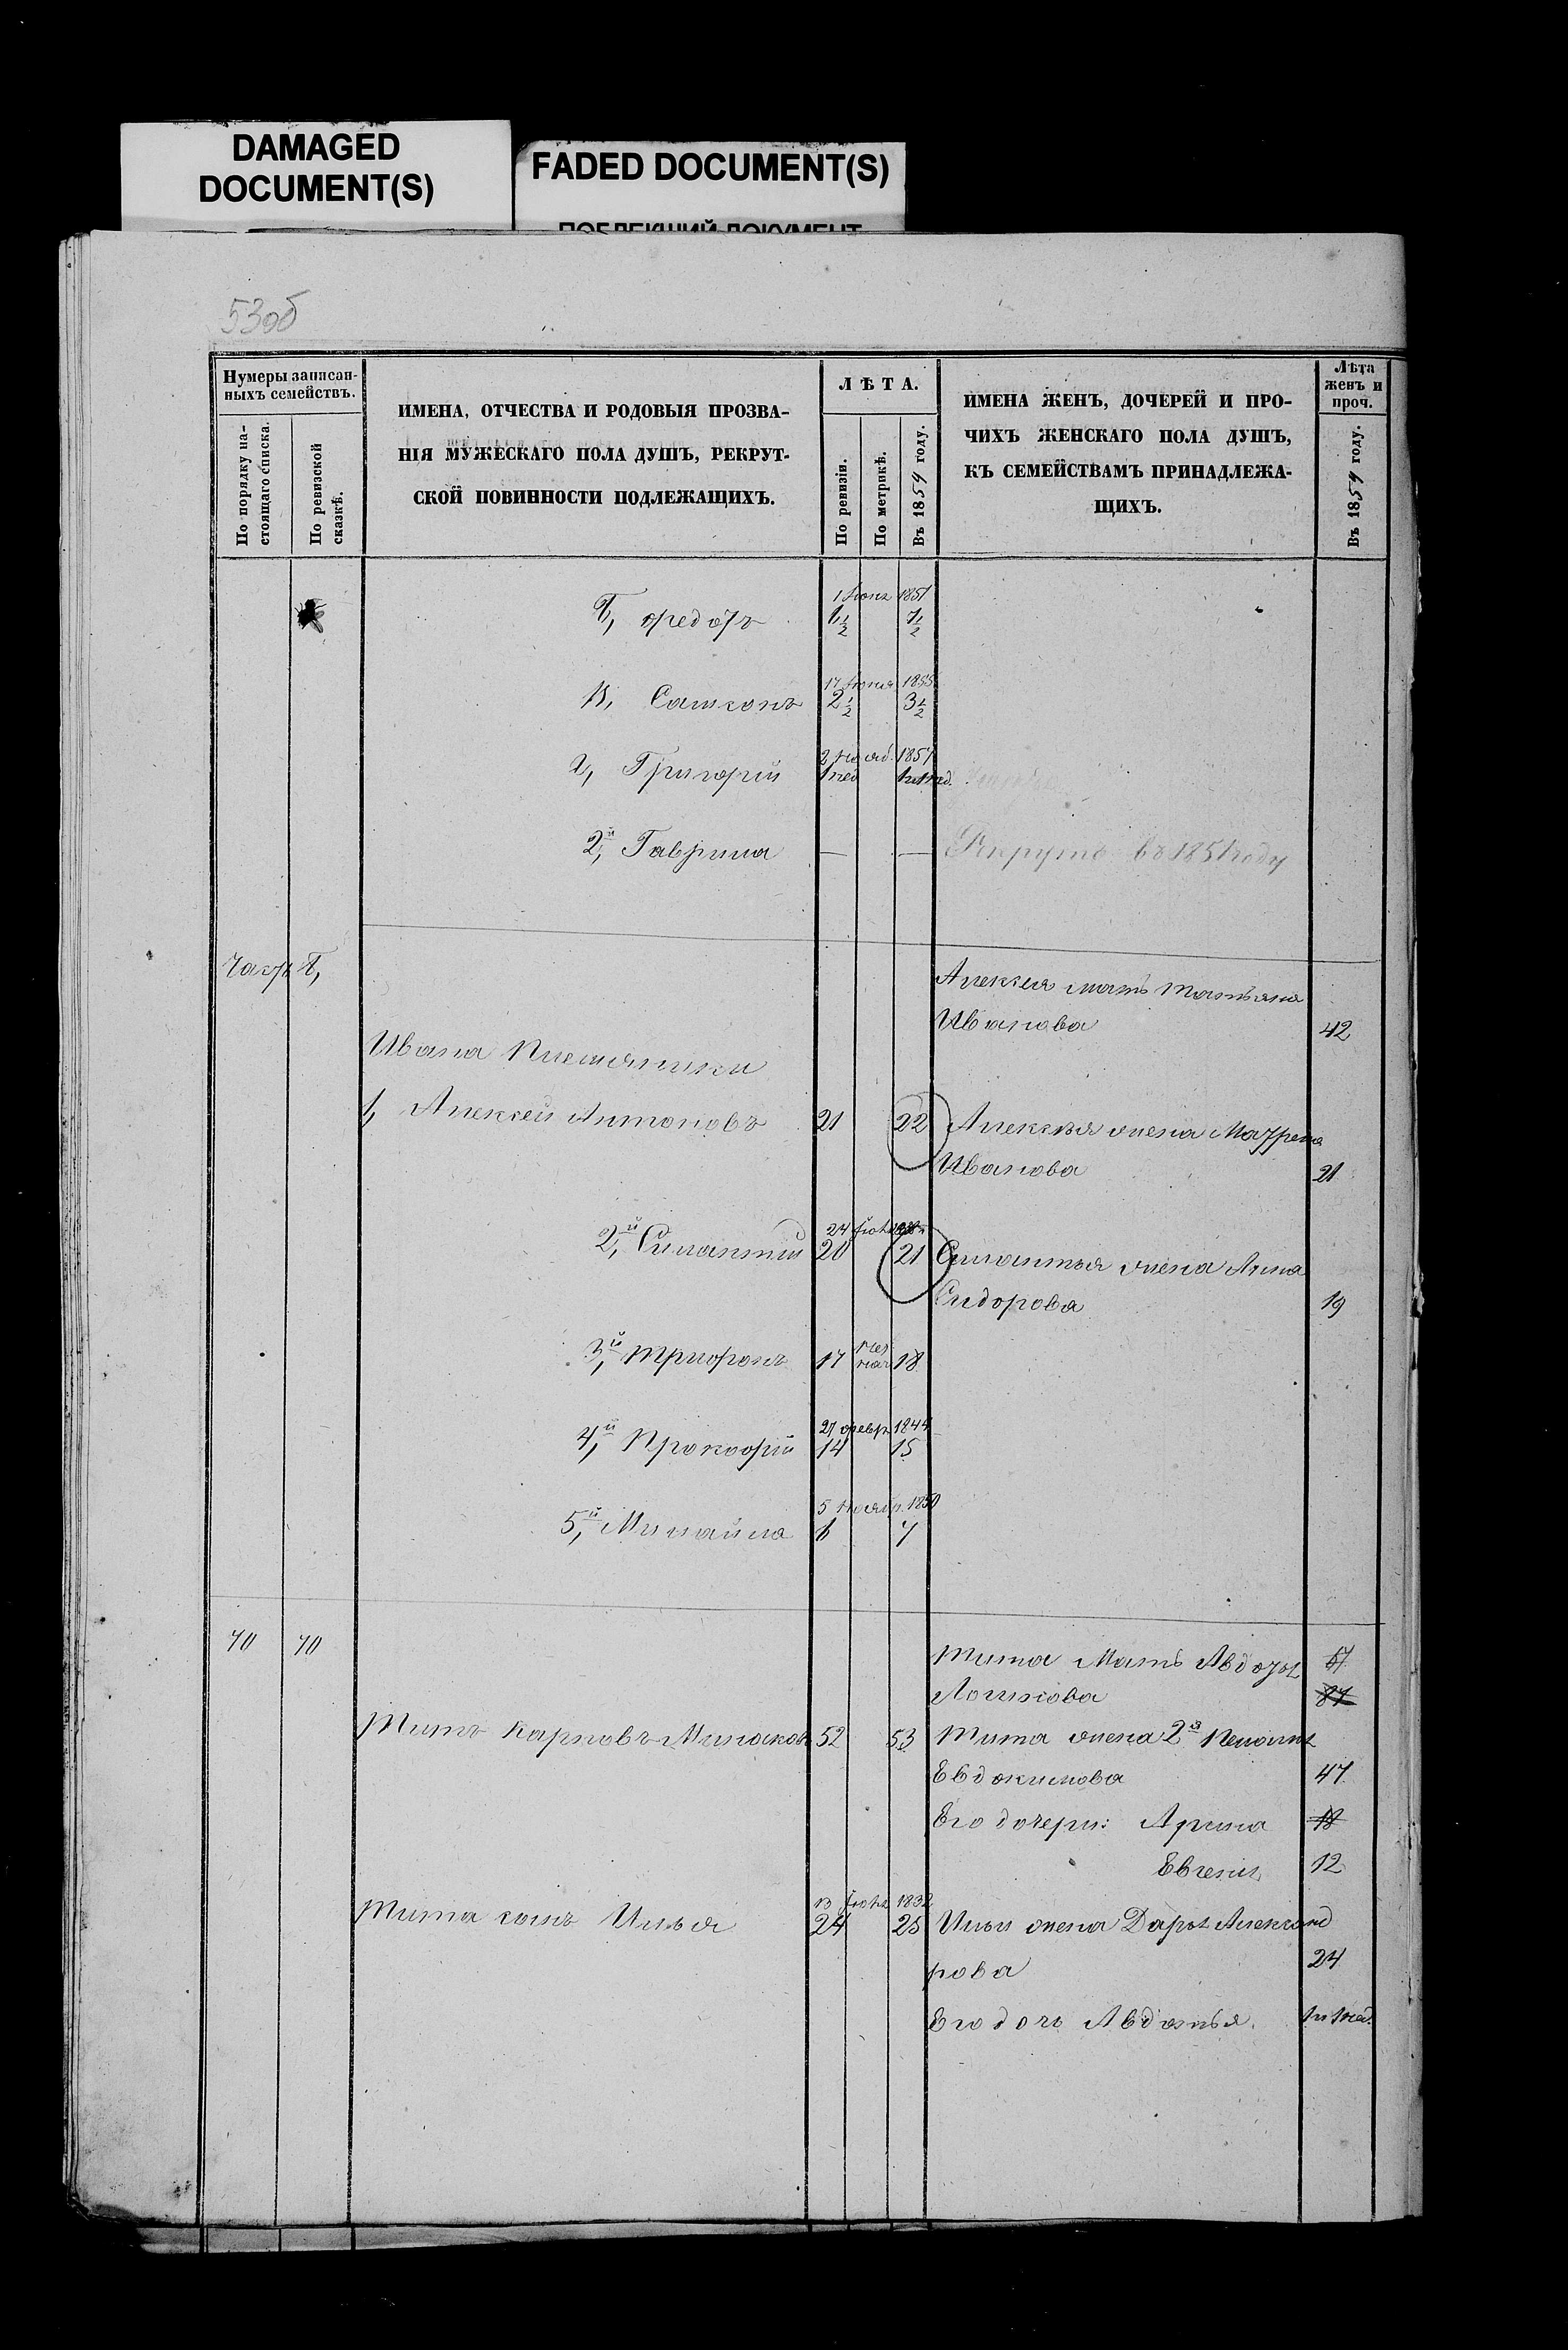 DAMAGED
DOCUMENT(S)
FADED DOCUMENT(S)
ПОБЛЕКШИЙ ДОКУМЕНТ
53об
Нумеры записан-
ныхъ семействъ.
По порядку на-
стоящаго списка.
По ревизской
сказкѣ.
ИМЕНА, ОТЧЕСТВА И РОДОВЫЯ ПРОЗВА-
НІЯ МУЖЕСКАГО ПОЛА ДУШЪ, РЕКРУТ-
СКОЙ ПОВИННОСТИ ПОДЛЕЖАЩИХЪ.
ЛѢТА.
По ревизіи.
По метрикѣ.
Въ 1859 году.
ИМЕНА ЖЕНЪ, ДОЧЕРЕЙ И ПРО-
ЧИХЪ ЖЕНСКАГО ПОЛА ДУШЪ,
КЪ СЕМЕЙСТВАМЪ ПРИНАДЛЕЖА-
ЩИХЪ.
Лѣта
женъ и
проч.
Въ 1859 году.
1851
Б, Федотъ
17 Іюня 1855
В, Самсонъ 2½ 3½
2 Нояб. 1857
Г, Григорій 1 нед
2й, Гаврила — — Рекрутъ въ 1851 году
Часть Б,
Алексея мать Татьяна
Иванова 42
Ивана Племянники
1, Алексей Антоновъ 21 22 Алексѣя жена Матрена
Иванова 21
24
2й, Силантий 20 21 Силантья жена Анна
Сидорова 19
3й, Трифонъ 17 18
27 февр. 1844
4й, Прокофий 14 15
5 Ноябр. 1850
5й, Михайла 6 7
70 70
Тита Мать Авдотья
Логинова
Титъ Карповъ 52 53 Тита жена 2я Пелагия
Евдокимова 47
Его дочери: Арина 18
Евгения 12
13 1832
Тита сынъ Илья 24 25 Ильи жена Дарья Александ
рова 24
Его дочь Авдотья.